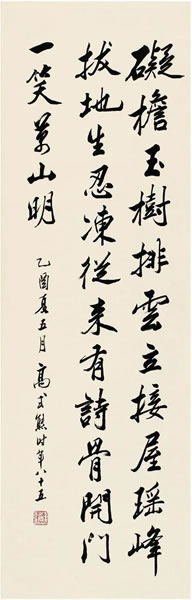 礙檐玉樹排雲立接屋瑤峰
拔地生忍凍從来有詩骨開門
一笑萬山明
乙酉夏五月高式熊時年八十五